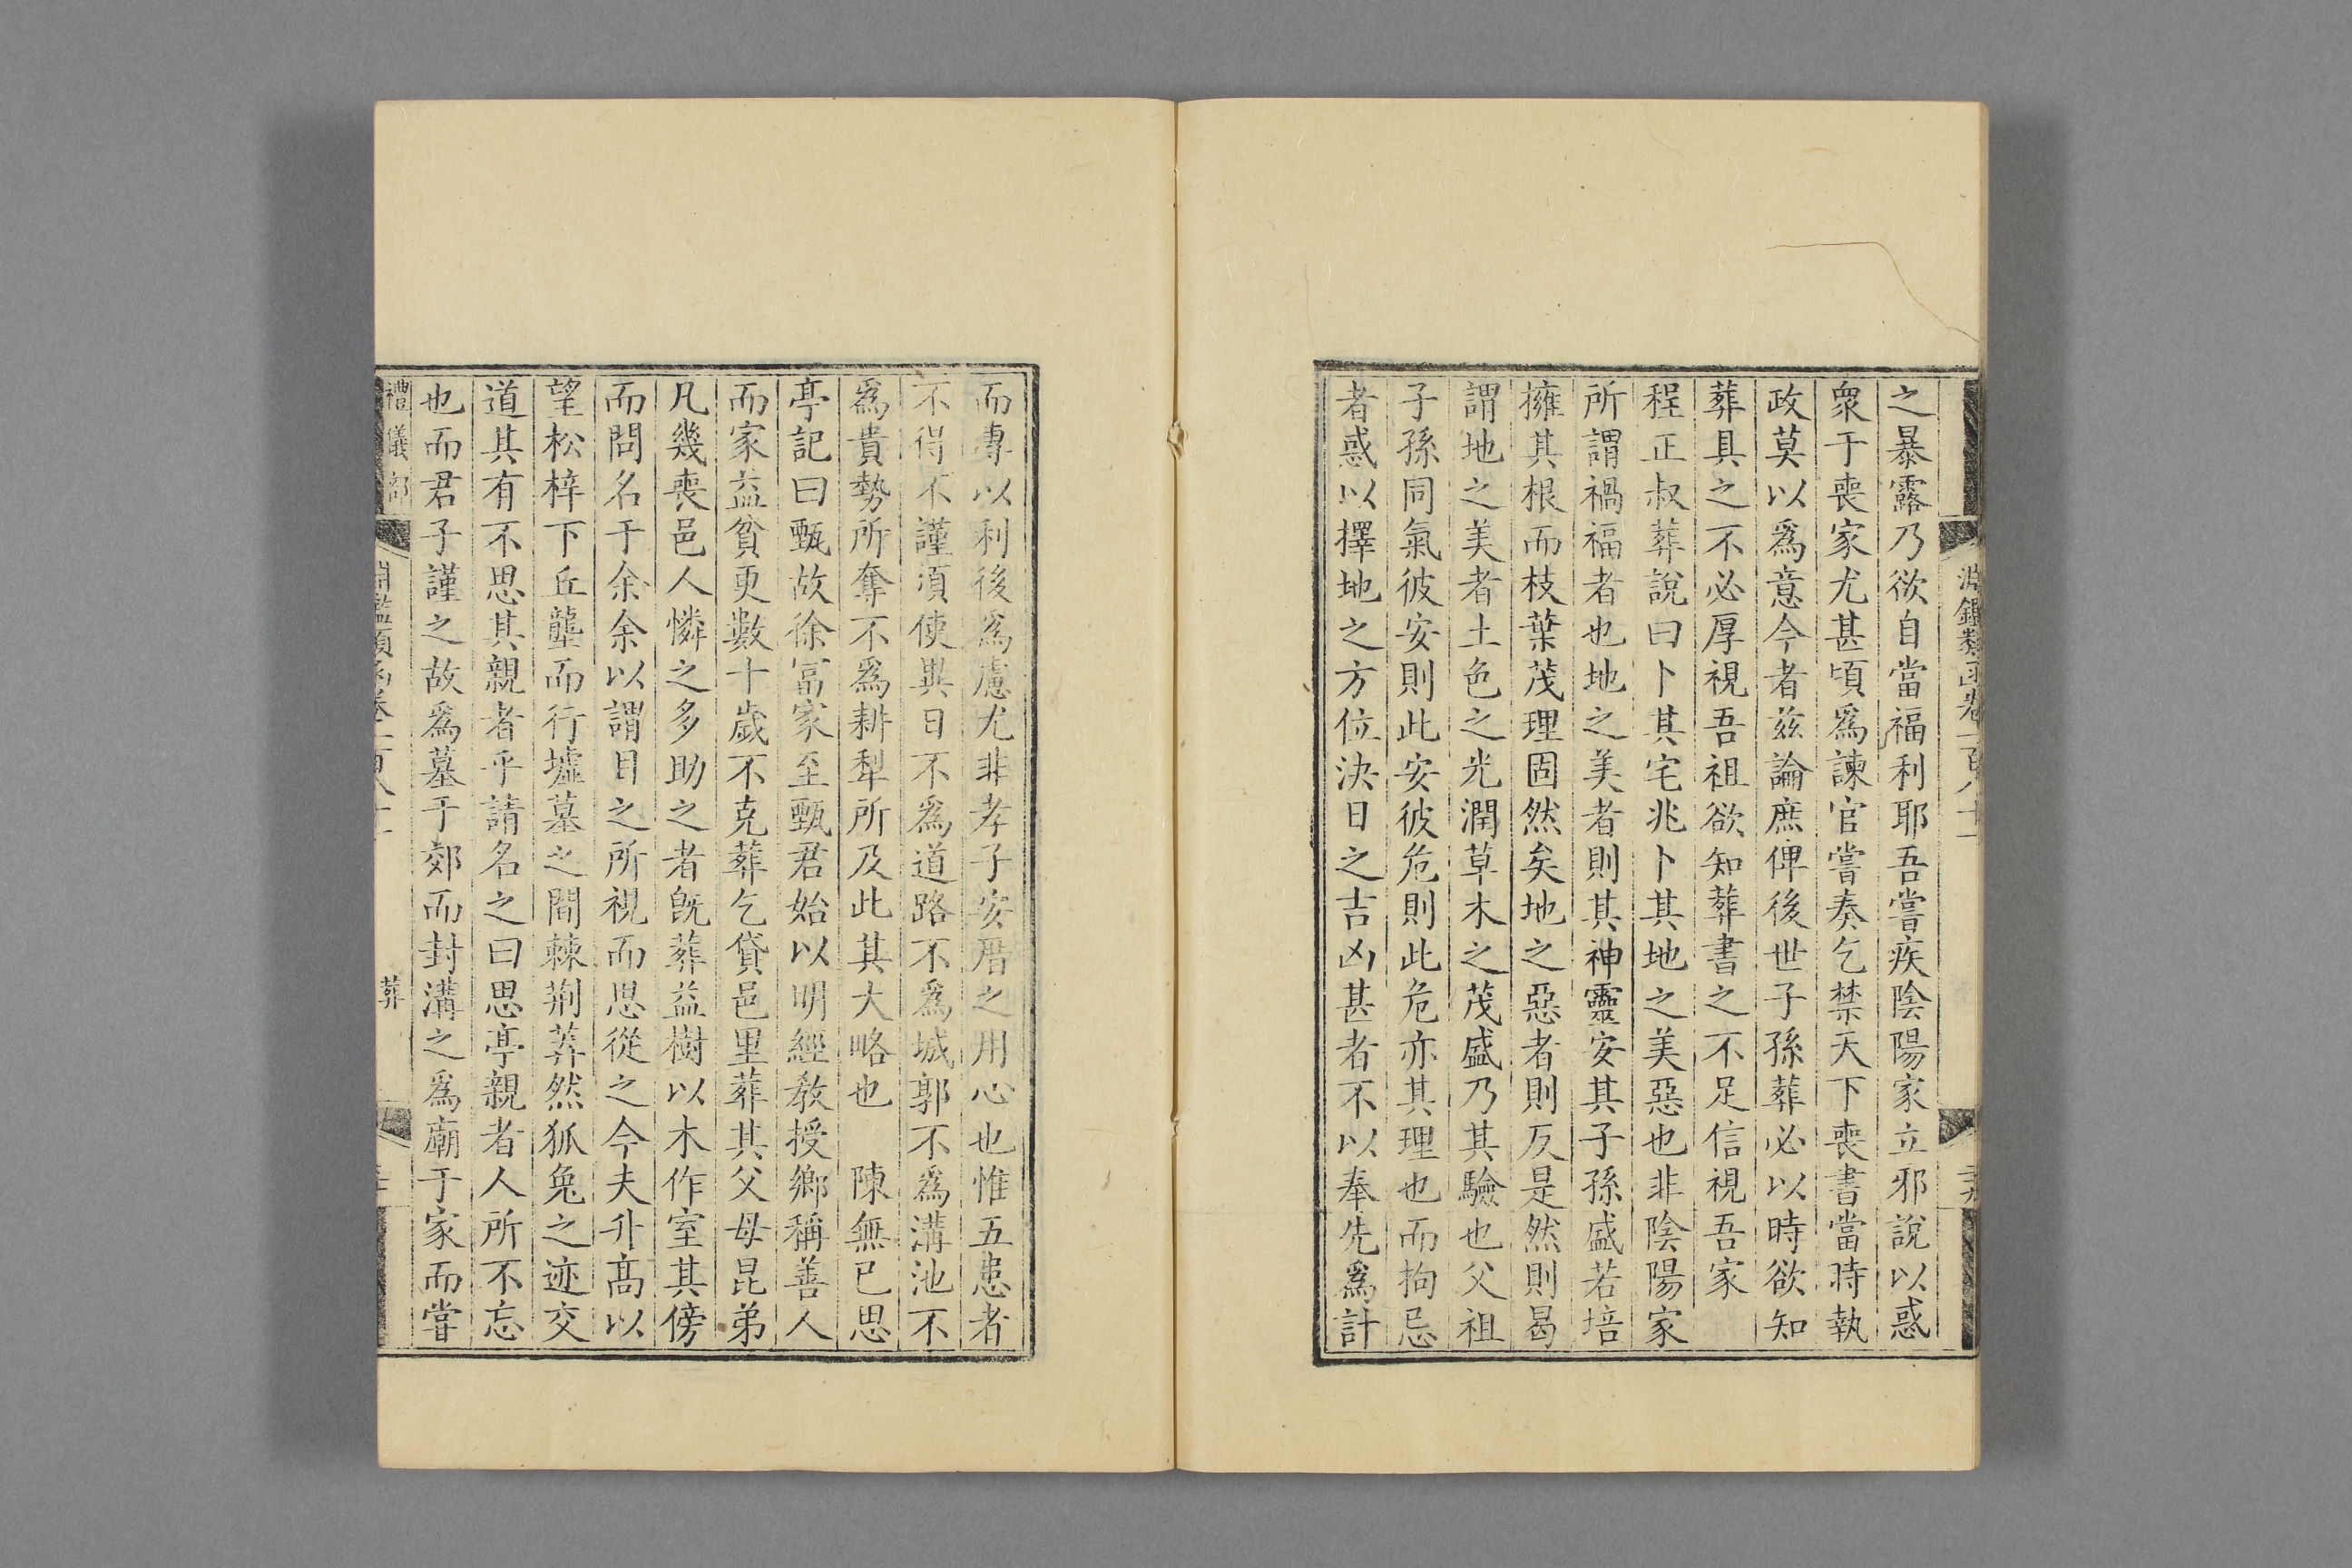 淵鑑類函卷一百八十一
之暴露乃欲自當福利耶吾嘗疾陰陽家立邪說以惑
衆于喪家尤甚頃爲諫官嘗奏乞禁天下喪書當時執
政莫以爲意今者茲論庶俾後世子孫葬必以時欲知
葬具之不必厚視吾祖欲知葬書之不足信視吾家
程正叔葬說曰卜其宅兆卜其地之美惡也非陰陽家
所謂禍福者也地之美者則其神靈安其子孫盛若培
擁其根而枝葉茂理固然矣地之惡者則反是然則曷
謂地之美者土色之光潤草木之茂盛乃其驗也父祖
子孫同氣彼安則此安彼危則此危亦其理也而拘忌
者惑以擇地之方位決日之吉凶甚者不以奉先爲計
而專以利後爲慮尤非孝子安厝之用心也惟五患者
不得不謹須使異日不爲道路不爲城郭不爲溝池不
爲貴勢所奪不爲耕犁所及此其大略也 陳無已思
亭記曰甄故徐富家至甄君始以明經敎授鄉稱善人
而家益貧更數十歲不克葬乞貸邑里葬其父母昆弟
凡幾喪邑人憐之多助之者旣葬益樹以木作室其傍
而問名于余余以謂目之所視而思從之今夫升高以
望松梓下丘壟而行墟墓之間棘荆莽然狐兔之迹交
道其有不思其親者乎請名之曰思亭親者人所不忘
也而君子謹之故爲墓于郊而封溝之爲廟于家而嘗
禮儀部 淵鑑類函卷一百八十一 葬